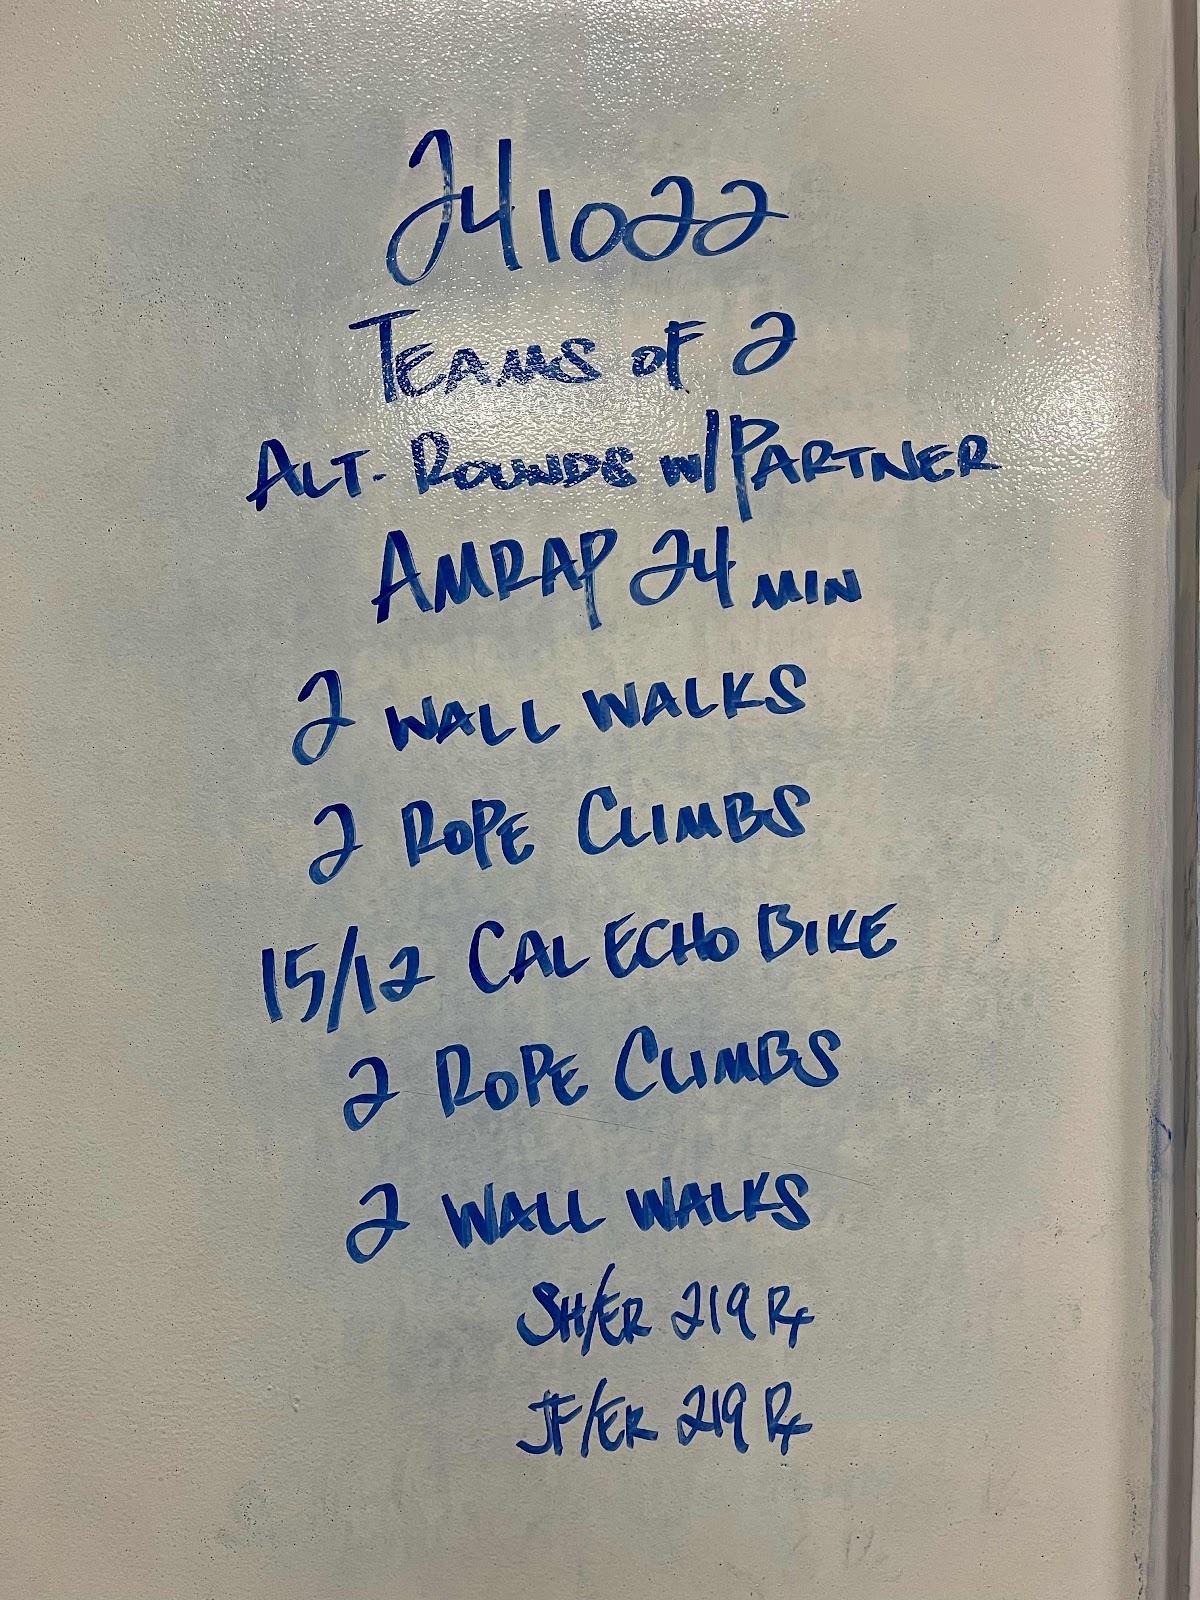 241022
TEAMS OF 2
ALT. ROUNDS W/PARTNER
AMRAP 24 MIN
2 WALL WALKS
2 ROPE CLIMBS
15/12 CAL ECHO BIKE
2 ROPE CLIMBS
2 WALL WALKS
SH/ER 219 Rx
JF/EK 219 Rx